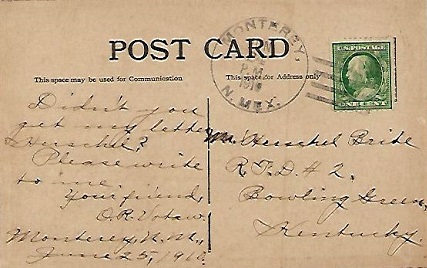 POST CARD
MONTEREY,
P M
N. MEX.
U.S. POSTAGE
ONE CENT
This space may be used for Communication
This space for Address only
Didn't you
get my letter
Herschel?
Please write
to me.
Your friend,
O.R. Votaw.
Monterey, N.M.,
June 25, 1910
Mr. Herschel Brite
R.F.D. # 2.
Bowling Green,
Kentucky.